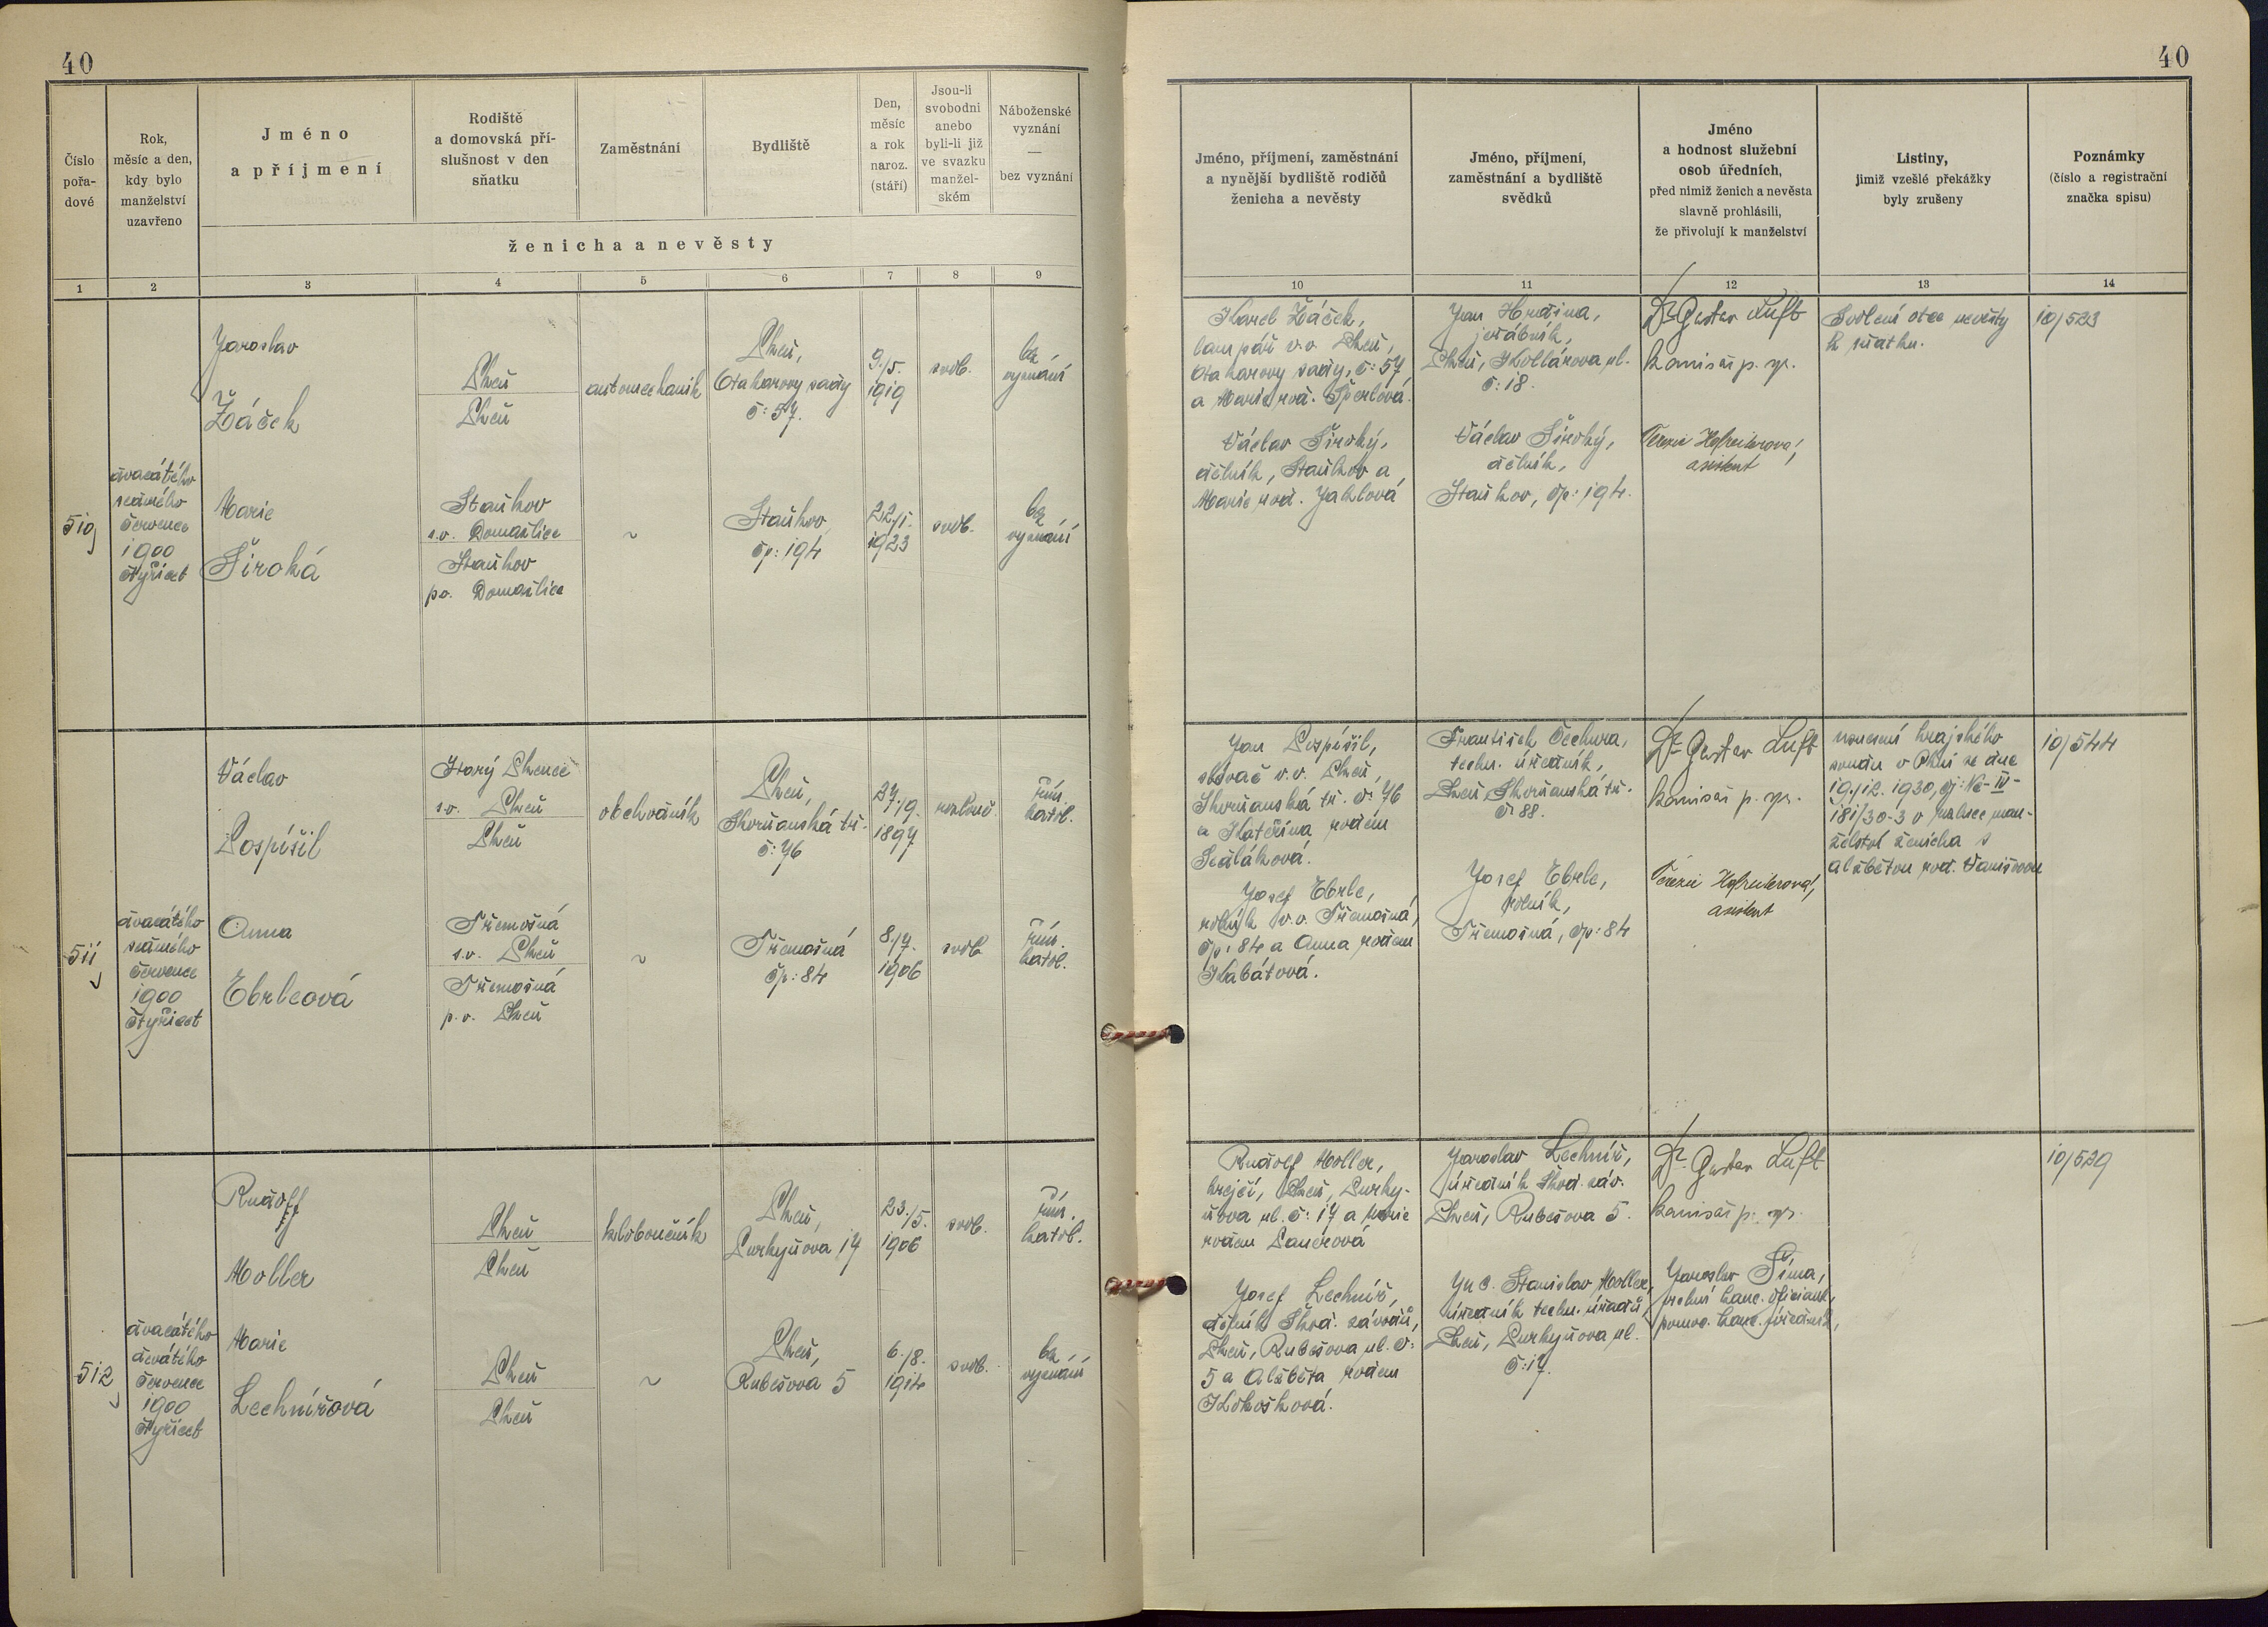 40
40
Číslo
pořa-
dové
Rok,
měsíc a den,
kdy bylo
manželství
uzavřeno
Jméno
a příjmení
Rodiště
a domovská pří-
slušnost v den
sňatku
Zaměstnání
Bydliště
Den,
měsíc
a rok
naroz.
(stáří)
Jsou-li
svobodni
anebo
byli-li již
ve svazku
manžel-
ském
Náboženské
vyznání
—
bez vyznání
ženicha a nevěsty
Jméno, příjmení, zaměstnání
a nynější bydliště rodičů
ženicha a nevěsty
Jméno, příjmení,
zaměstnání a bydliště
svědků
Jméno
a hodnost služební
osob úředních,
před nimiž ženich a nevěsta
slavně prohlásili,
že přivolují k manželství
Listiny,
jimiž vzešlé překážky
byly zrušeny
Poznámky
(číslo a registrační
značka spisu)
1 2 3 4 5 6 7 8 9
10 11 12 13 14
510
dvacátého
sedmého
července
1900
čtyřicet
Jaroslav
Žáček
Plzeň
Plzeň
automechanik
Plzeň,
Otakarovy sady
č: 57.
9./5.
1919
svob.
bez
vyznání
Marie
Široká
Staňkov
s.o. Domažlice
Staňkov
p.o. Domažlice
~
Staňkov
čp: 194
22./1.
1923
svob.
bez
vyznání
Karel Žáček,
lampář v.v. Plzeň,
Otakarovy sady, č: 57
a Marie rod. Šperlová.
Václav Široký,
dělník, Staňkov a
Marie rod. Jahlová
Jan Hrdina,
jeřábník,
Plzeň, Kollárova ul.
č: 18.
Václav Široký,
dělník,
Staňkov, čp: 194.
Dr Gustav Luft
komisař p. spr.
Terezie Hofreiterová,
asistent
Svolení otce nevěsty
k sňatku.
10/523
511
dvacátého
sedmého
července
1900
čtyřicet
Václav
Pospíšil
Starý Plzenec
s.o. Plzeň
Plzeň
obchodník
Plzeň,
Skvrňanská tř.
č: 76
27./9.
1897
rozlouč.
řím.
katol.
Anna
Ebrleová
Třemošná
s.o. Plzeň
Třemošná
p.o. Plzeň
~
Třemošná
čp: 84
8./7.
1906
svob
řím.
katol.
Jan Pospíšil,
slévač v.v. Plzeň,
Skvrňanská tř. č: 76
a Kateřina rodem
Sedláková.
Josef Ebrle,
rolník v.v. Třemošná,
čp: 84 a Anna rodem
Kabátová.
František Čechura,
techn. úředník,
Plzeň, Skvrňanská tř.
č: 88.
Josef Ebrle,
rolník,
Třemošná, čp: 84
Dr Gustav Luft
komisař p. spr.
Terezie Hofreiterová,
asistent
usnesení krajského
soudu v Plzni ze dne
19./12. 1930, čj: Nc-IV-
181/30-3 o rozluce man-
želství ženicha s
Alžbětou rod. Vanišovou
10/544
512
dvacátého
devátého
července
1900
čtyřicet
Rudolf
Moller
Plzeň
Plzeň
kloboučník
Plzeň,
Purkyňova 17
23./5.
1906
svob.
řím.
katol.
Marie
Lechnířová
Plzeň
Plzeň
~
Plzeň,
Rubešova 5
6./8.
1914
svob.
bez
vyznání
Rudolf Moller,
krejčí, Plzeň, Purky-
ňova ul. č: 17 a Marie
rodem Pancrová
Josef Lechníř,
dělník Škod. závodů,
Plzeň, Rubešova ul. č:
5 a Alžběta rodem
Kokošková.
Jaroslav Lechníř,
úředník Škod. záv.
Plzeň, Rubešova 5.
Stanislav Moller,
úředník techn. úřadů,
Plzeň, Purkyňova ul.
č: 17.
Dr Gustav Luft
komisař p. spr.
Jaroslav Šíma,
kanc. oficiant,
pomoc. kanc. úředník,
10/529